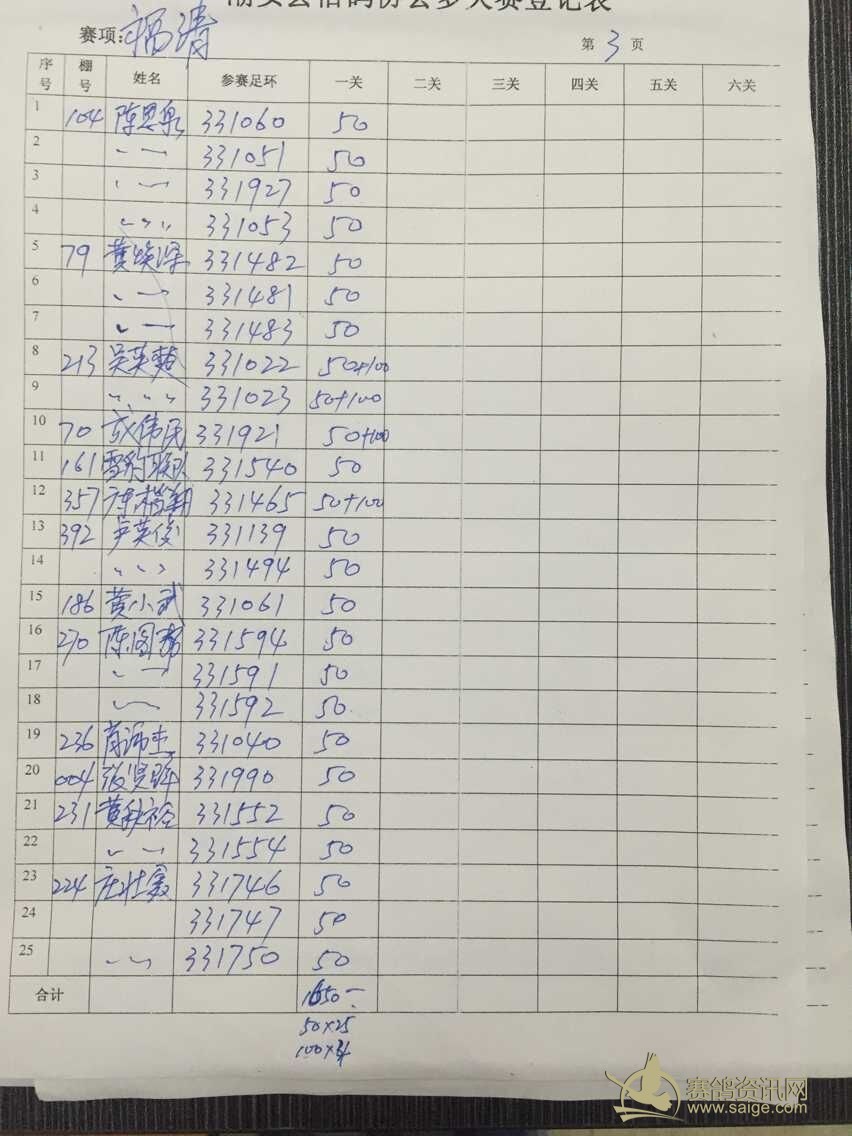 潮安县信鸽协会多关赛登记表
赛项: 福清 第 3 页
序号 棚号 姓名 参赛足环 一关 二关 三关 四关 五关 六关
1 104 陈思泉 331060 50
2 〃 331051 50
3 〃 331927 50
4 〃 331053 50
5 79 黄焕深 331482 50
6 〃 331481 50
7 〃 331483 50
8 213 吴英楚 331022 50+100
9 〃 331023 50+100
10 70 张伟民 331921 50+100
11 161 雪豹联队 331540 50
12 357 陈楷翔 331465 50+100
13 392 卢英俊 331139 50
14 〃 331494 50
15 186 黄小武 331061 50
16 270 陈图 331594 50
17 〃 331591 50
18 〃 331592 50
19 236 331040 50
20 004 张贤 331990 50
21 231 黄秋 331552 50
22 〃 331554 50
23 224 庄壮 331746 50
24 331747 50
25 〃 331750 50
合计 1650-
50×25
100×4
赛鸽资讯网
www.saige.com